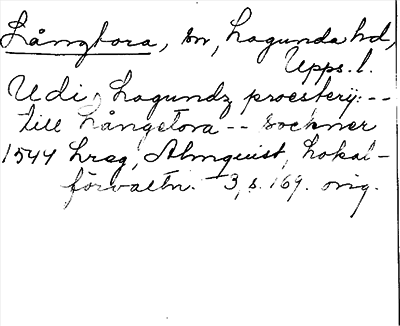 Långtora, sn, Lagunda hd,
Upps. l.
Udi Lagundz proesterij: --
till Långetora -- sockner
1544 Lreg, Almquist, Lokal-
förvaltn. 3, s. 169. orig.